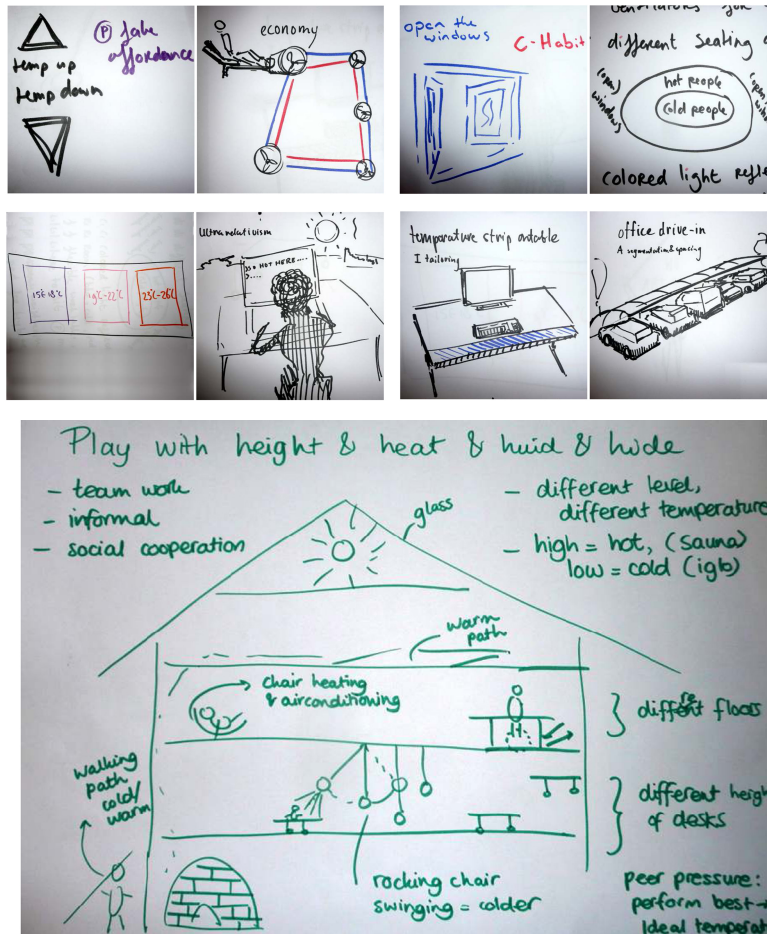 temp up
temp down
(P) fake
affordance
economy
open the
windows
C-Habit
different seating
(open)
windows
hot people
cold people
(open
colored light
15°-18°C
19°C-22°C
23°C-26°C
Ultra relativism
HOT HERE....
temperature strip
I tailoring
office drive-in
A segmentation & spacing
Play with height & heat & huid & hide
- team work
- informal
- social cooperation
glass
- different level,
different temperature
- high = hot, (sauna)
low = cold (iglo)
warm
path
chair heating
& airconditioning
different floors
walking
path
cold/
warm
different heigh
of desks
rocking chair
swinging = colder
peer pressure:
perform best
Ideal temperat